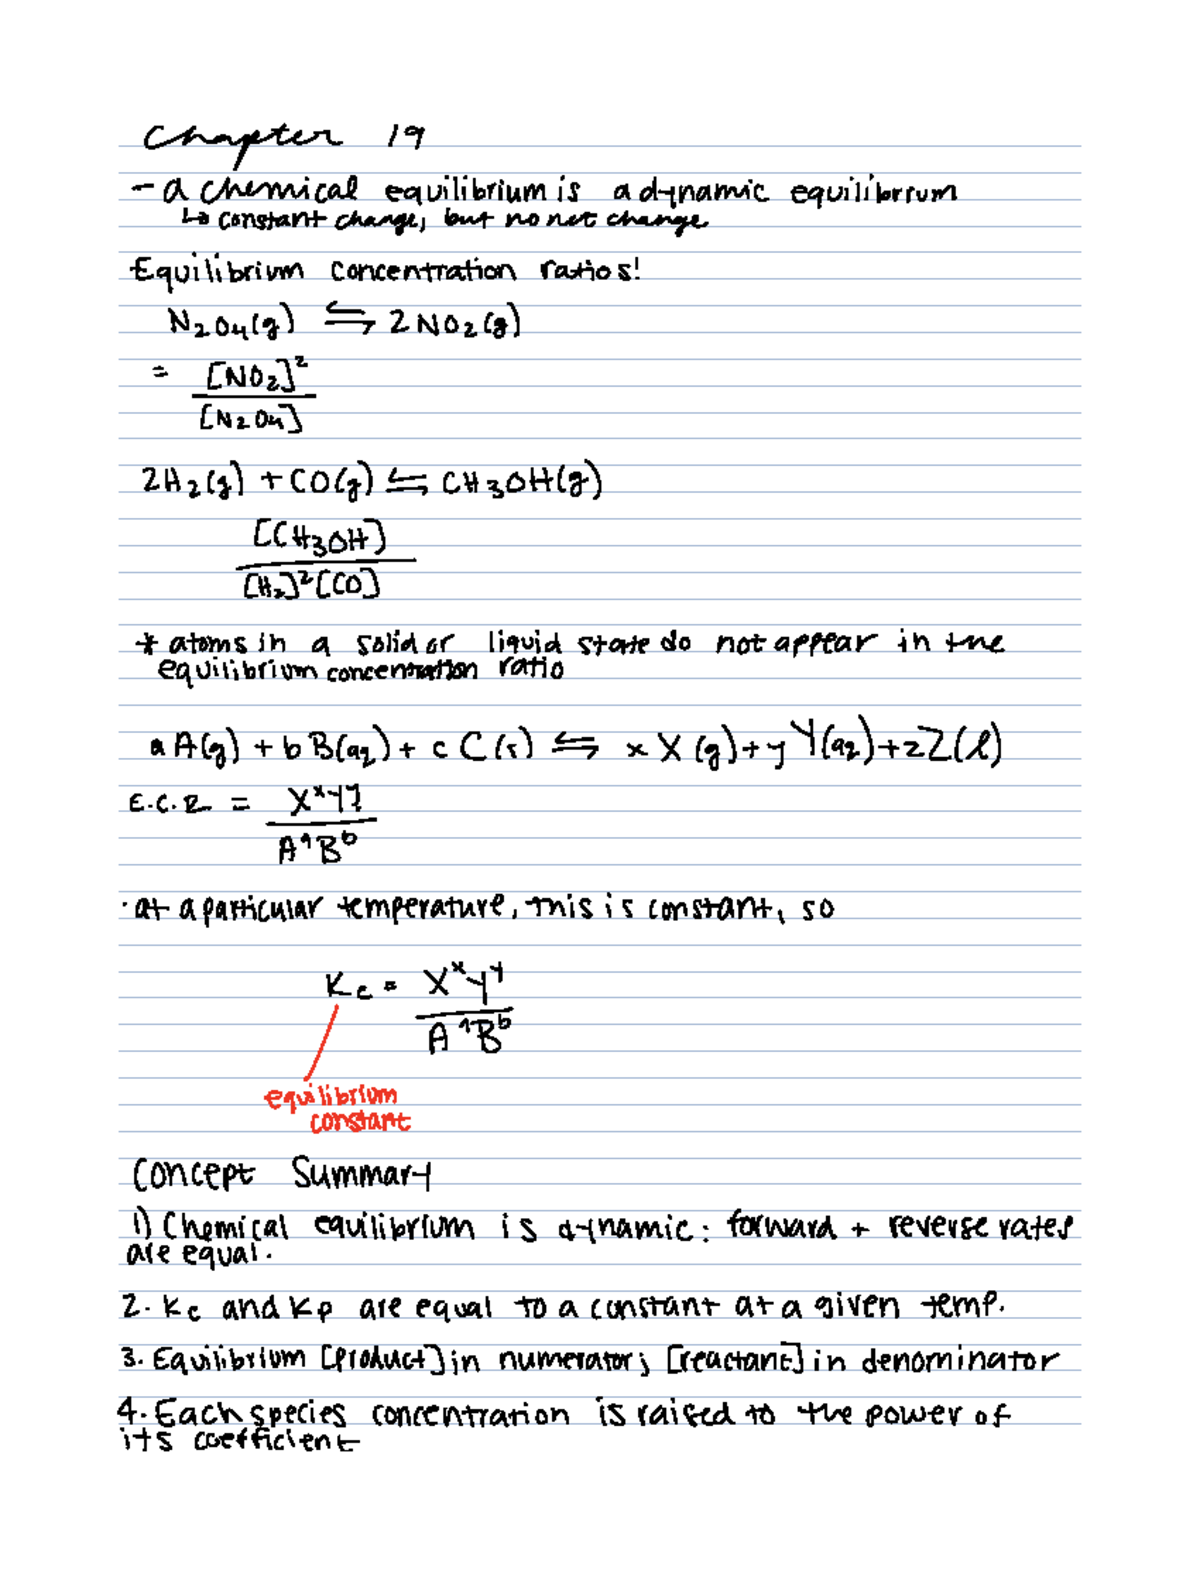 Chapter 19
- a chemical equilibrium is a dynamic equilibrium
↳ constant change, but no net change
Equilibrium concentration ratios!
N₂O₄(g) ⇆ 2NO₂(g)
= [NO₂]²
[N₂O₄]
2H₂(g) + CO(g) ⇆ CH₃OH(g)
[CH₃OH]
[H₂]²[CO]
* atoms in a solid or liquid state do not appear in the
equilibrium concentration ratio
aA(g) + bB(aq) + cC(s) ⇆ xX(g) + yY(aq) + zZ(l)
E.C.R = XˣYʸ
AᵃBᵇ
· at a particular temperature, this is constant, so
Kc = XˣYʸ
AᵃBᵇ
equilibrium
constant
Concept Summary
1) Chemical equilibrium is dynamic: forward + reverse rates
are equal.
2. Kc and Kp are equal to a constant at a given temp.
3. Equilibrium [product] in numerator; [reactant] in denominator
4. Each species concentration is raised to the power of
its coefficient